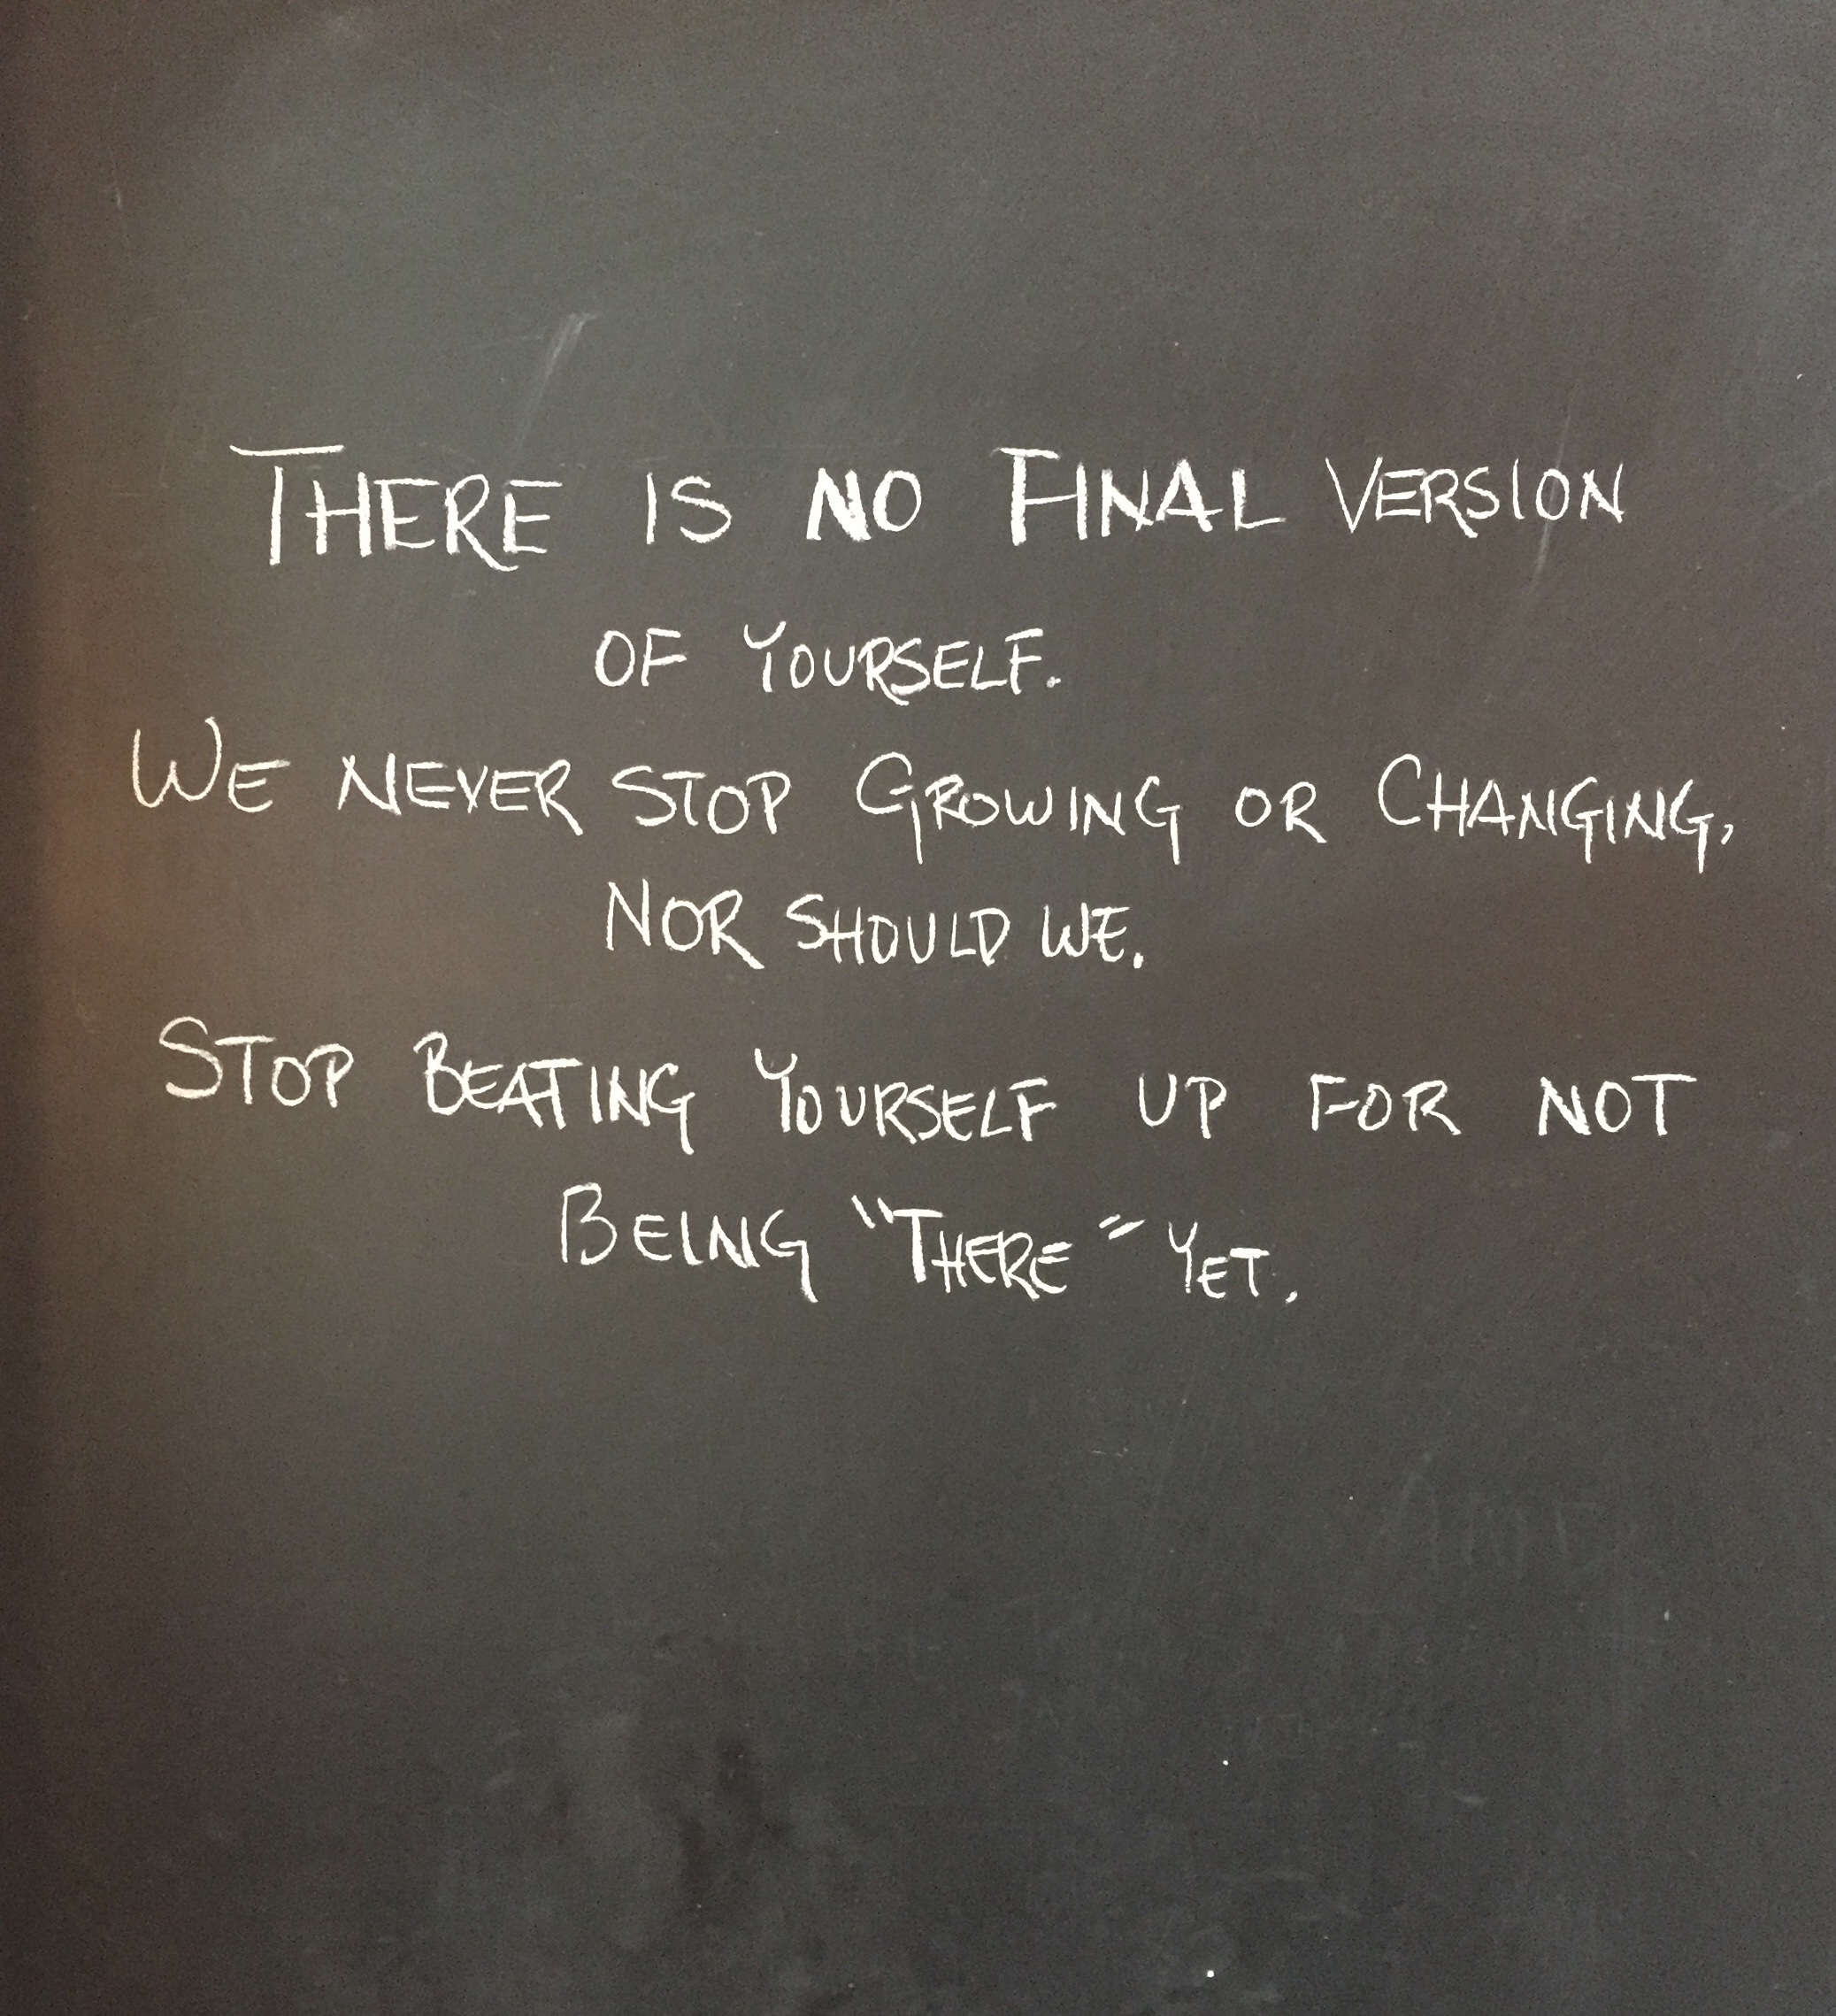 THERE IS NO FINAL VERSION
OF YOURSELF.
WE NEVER STOP GROWING OR CHANGING,
NOR SHOULD WE.
STOP BEATING YOURSELF UP FOR NOT
BEING "THERE" YET.